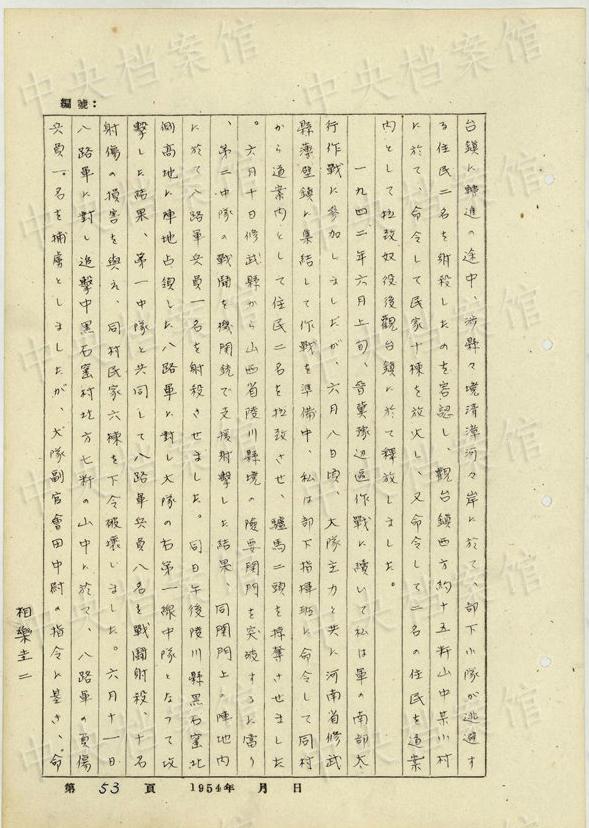 編號：
台鎮に轉進の途中、渉縣々境清漳河々岸に於て、部下小隊が逃避す
る住民二名を射殺したのを容認し、觀台鎮西方約十五粁山中某小村
に於て、命令して民家十棟を放火し、又命令して二名の住民を道案
内として拉致奴役後觀台鎮に於て釋放しました。
一九四二年六月上旬、晉冀豫边區作戰に續いて私は軍の南部太
行作戰に参加しましたが、六月八日頃、大隊主力と共に河南省修武
縣薄壁鎮に集結して作戰を準備中、私は部下指揮班に命令して同村
から道案内として住民二名を拉致させ、驢馬二頭を掠奪させました
。六月十日修武縣から山西省陵川縣境の陵要関門を突破するに當り
、第二中隊の戰闘を機関銃で支援射撃した結果、同関門上の陣地内
に於て八路軍兵員一名を射殺させました。同日午後陵川縣黒石窯北
側高地に陣地占領した八路軍に対し大隊の右第一線中隊となつて攻
撃した結果、第一中隊と共同して八路軍兵員八名を戰闘射殺、十名
射傷の損害を與え、同村民家六棟を下令破壊しました。六月十一日
八路軍に対し追撃中黒石窯村北方七粁の山中に於て、八路軍の負傷
兵員一名を捕虜としましたが、大隊副官會田中尉の指令に基き、命
相樂圭二
第 53 頁 1954年 月 日
中央档案馆